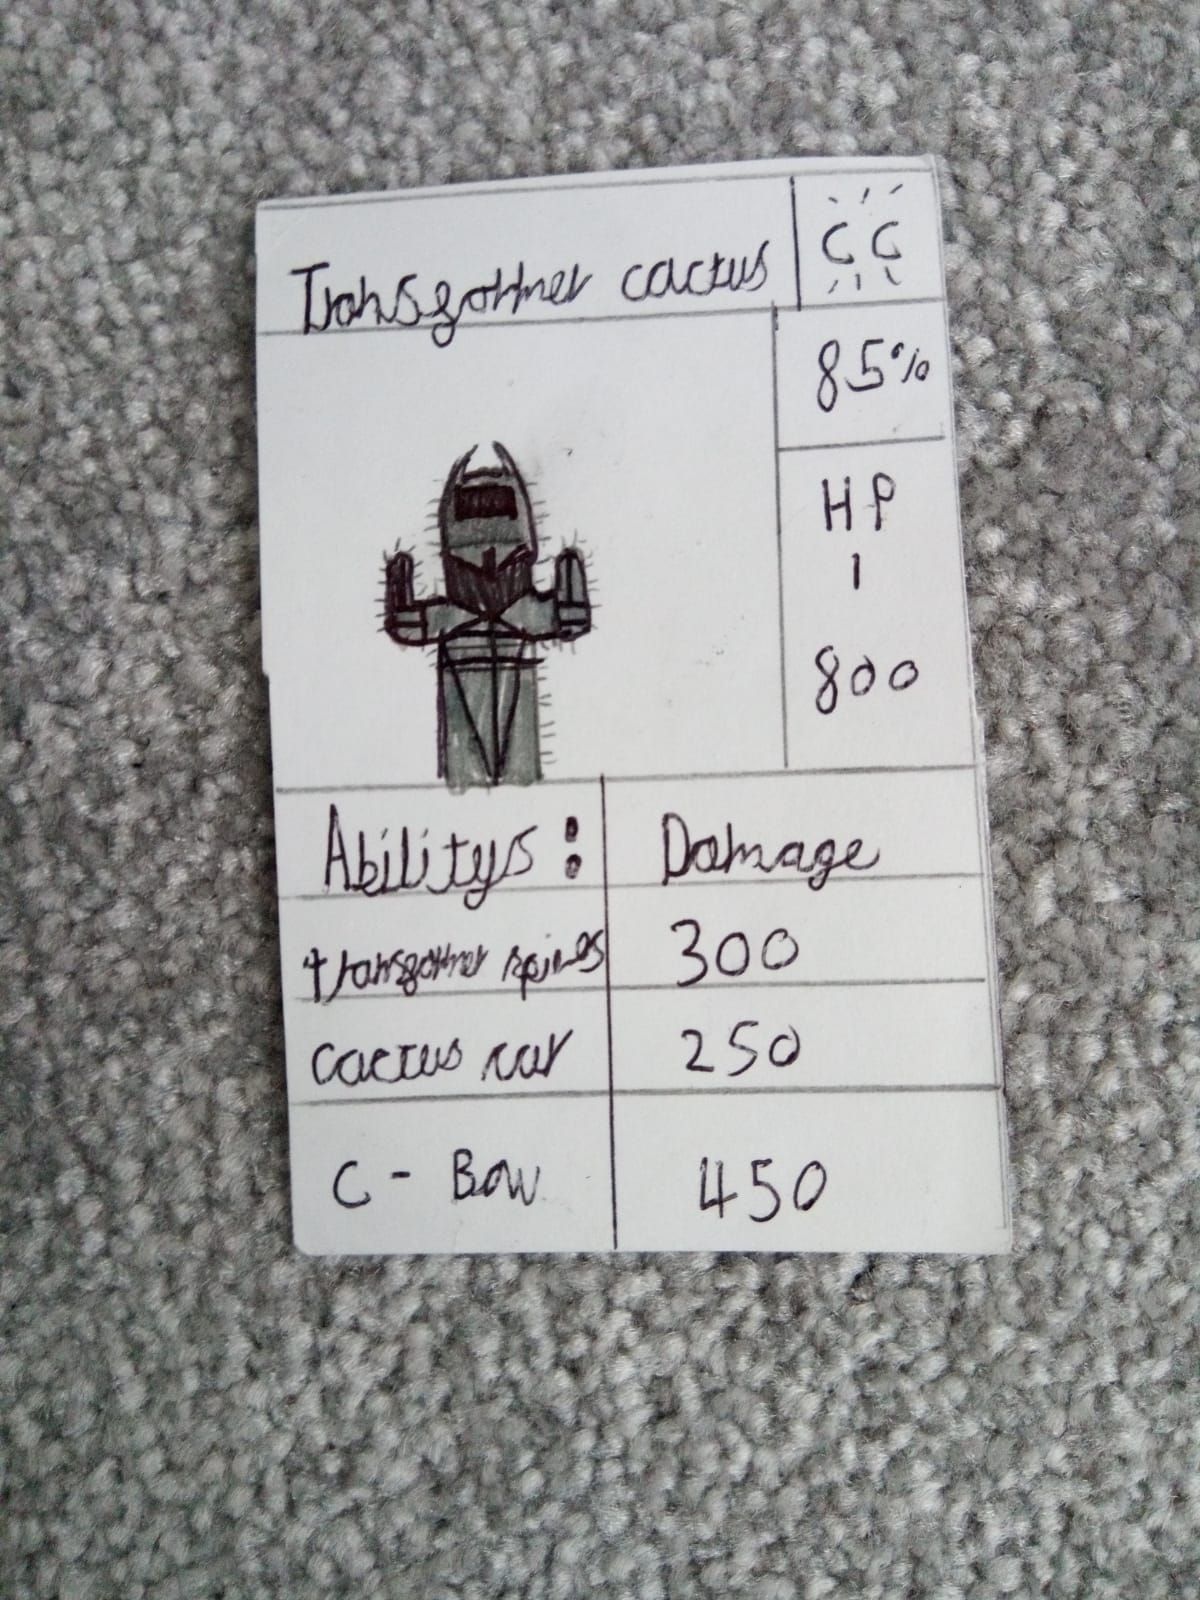 Transformer cactus
C C
85%
HP
1
800
Abilitys : Damage
transformer spines 300
cactus car 250
C - Bow 450